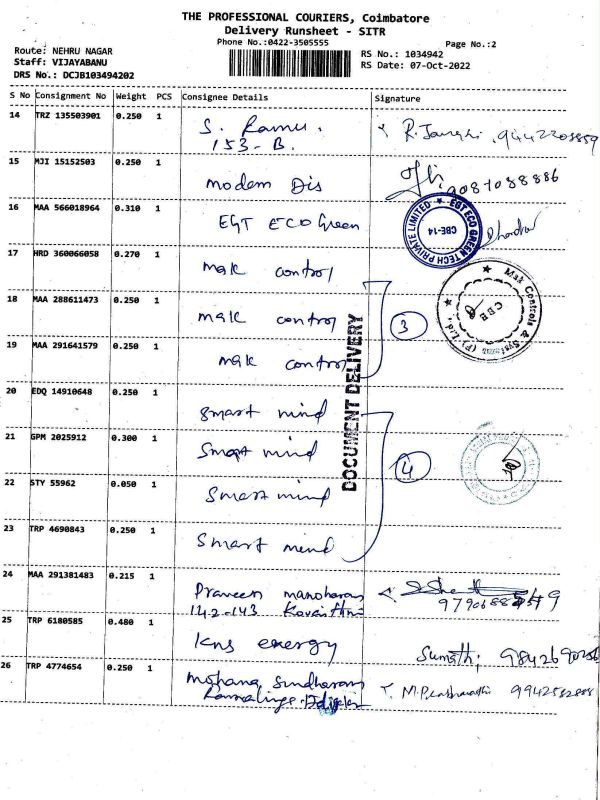 THE PROFESSIONAL COURIERS, Coimbatore
Delivery Runsheet - SITR
Phone No.:0422-3505555
Page No.:2
Route: NEHRU NAGAR
Staff: VIJAYABANU
DRS No.: DCJB103494202
RS No.: 1034942
RS Date: 07-Oct-2022
S No Consignment No Weight PCS Consignee Details Signature
14 TRZ 135503901 0.250 1 S. Ramu. 153-B.
15 MJI 15152503 0.250 1 modem Dis 9087088886
16 MAA 566018964 0.310 1 EGT ECO Green
EGT ECO GREEN TECH PRIVATE LIMITED
CBE-14
17 HRD 360066058 0.270 1 mak control
18 MAA 288611473 0.250 1 mak control 3
Mak Controls & Systems (P) Ltd
CBE
19 MAA 291641579 0.250 1 mak control
DOCUMENT DELIVERY
20 EDQ 14910648 0.250 1 smart mind
21 GPM 2025912 0.300 1 Smart mind 4
22 STY 55962 0.050 1 Smart mind
23 TRP 4690843 0.250 1 Smart mind
24 MAA 291381483 0.215 1 Praveen manoharan
142-143
25 TRP 6180585 0.480 1 kns energy Sumathi,
26 TRP 4774654 0.250 1 Mohana Sundharam